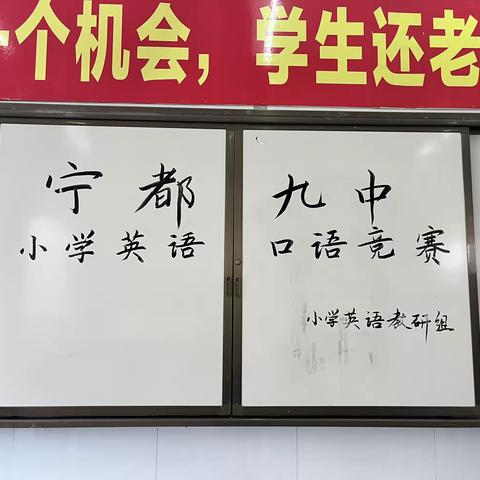 个机会，学生还老
宁都九中
小学英语口语竞赛
小学英语教研组